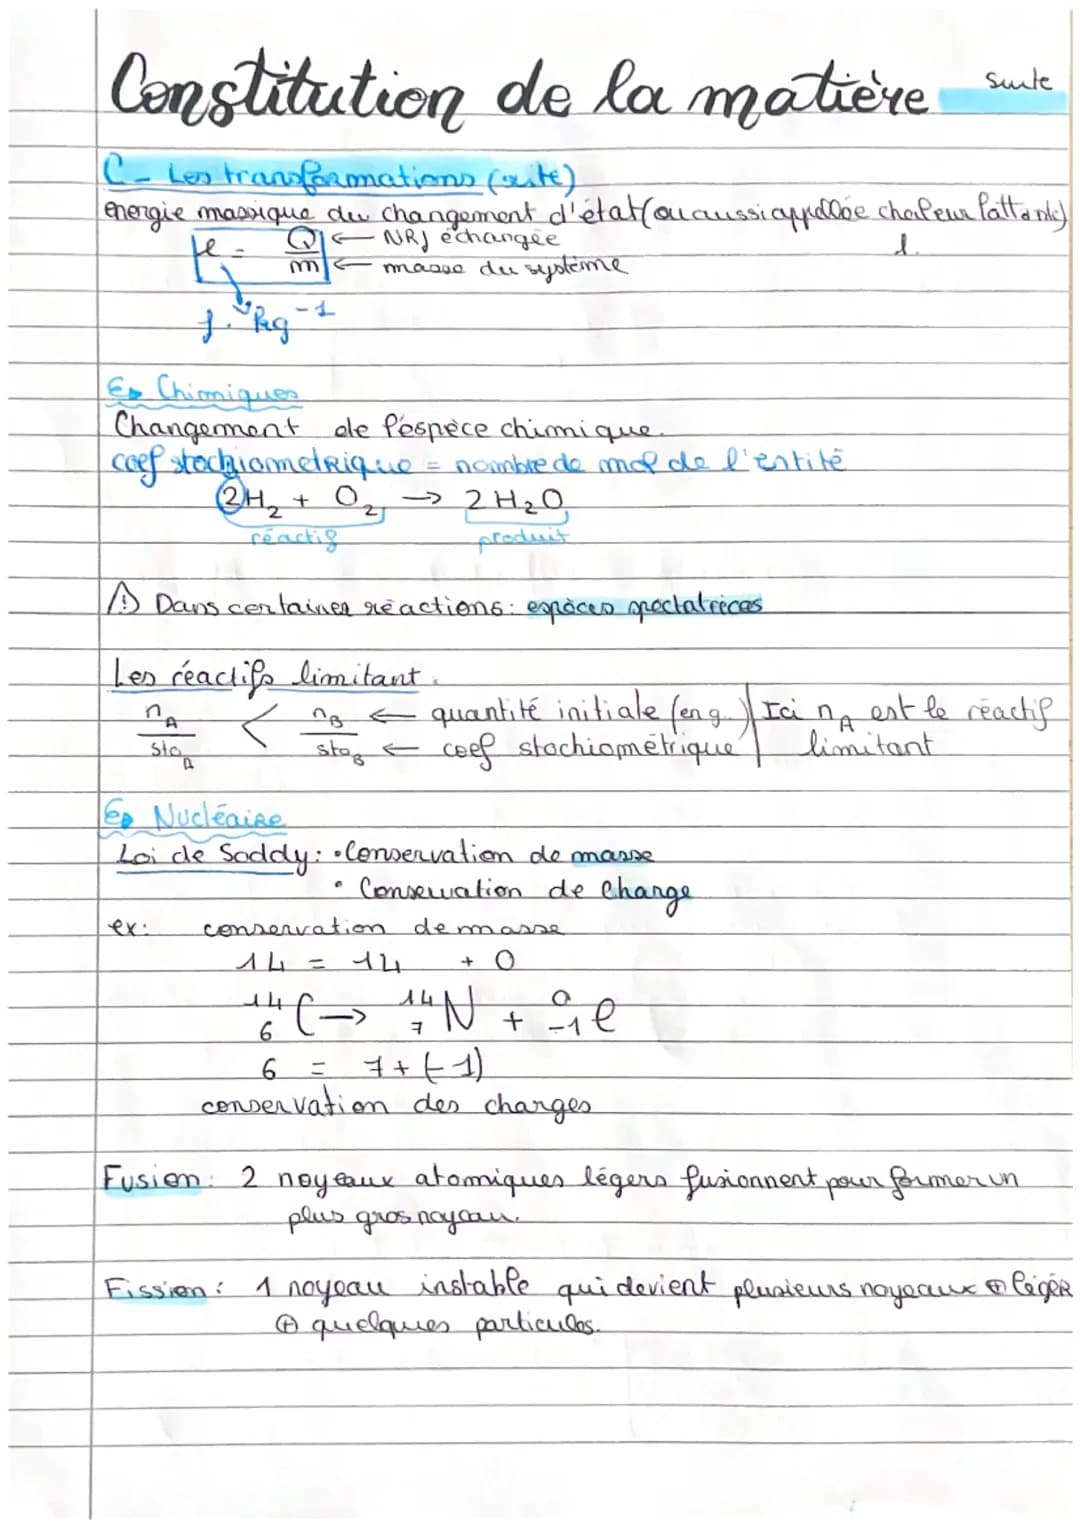 Constitution de la matière suite
C - Les transformations (suite)
energie massique du changement d'état (ou aussi appellée chaleur lattante)
l = Q ← NRJ échangée
m ← masse du système
l.
J. kg⁻¹
Chimiques
Changement de l'éspèce chimique.
coef stochiometrique = nombre de mol de l'entité
2H₂ + O₂ → 2H₂O
réactif produit
⚠ Dans certaines réactions: espèces spectatrices
Les réactifs limitant.
n_A < n_B ← quantité initiale (en g.) | Ici n_A est le réactif
sto_A sto_B ← coef stochiométrique | limitant
Nucléaire
Loi de Soddy: • Conservation de masse
• Conservation de charge
ex: conservation de masse
14 = 14 + 0
¹⁴₆C → ¹⁴₇N + ⁰₋₁e
6 = 7 + (-1)
conservation des charges
Fusion: 2 noyeaux atomiques légers fusionnent pour former un
plus gros noyeau.
Fission: 1 noyeau instable qui devient plusieurs noyeaux ⊕ léger
⊕ quelques particules.